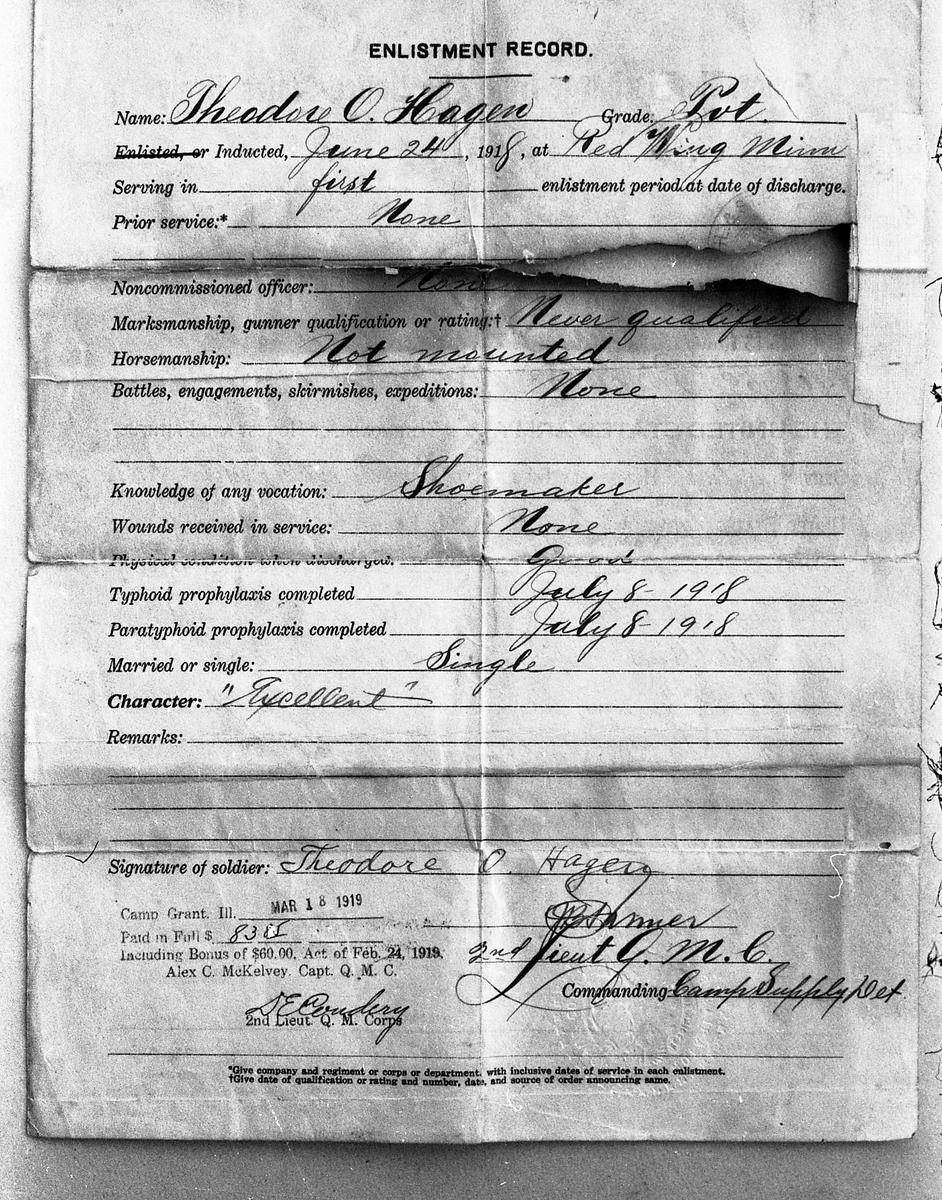 ENLISTMENT RECORD.
Name: Theodore O. Hagen Grade: Pvt.
Enlisted, or Inducted, June 24, 1918, at Red Wing Minn
Serving in first enlistment period at date of discharge.
Prior service:* None
Noncommissioned officer: None
Marksmanship, gunner qualification or rating:† Never qualified
Horsemanship: Not mounted
Battles, engagements, skirmishes, expeditions: None
Knowledge of any vocation: Shoemaker
Wounds received in service: None
Physical condition when discharged: Good
Typhoid prophylaxis completed July 8 - 1918
Paratyphoid prophylaxis completed July 8 - 1918
Married or single: Single
Character: "Excellent"
Remarks:
Signature of soldier: Theodore O. Hagen
Camp Grant, Ill. MAR 18 1919
Paid in Full $
Including Bonus of $60.00, Act of Feb. 24, 1919.
Alex C. McKelvey, Capt. Q. M. C.
2nd Lieut Q. M. C.
Commanding Camp Supply Det
2nd Lieut. Q. M. Corps
*Give company and regiment or corps or department, with inclusive dates of service in each enlistment.
†Give date of qualification or rating and number, date, and source of order announcing same.